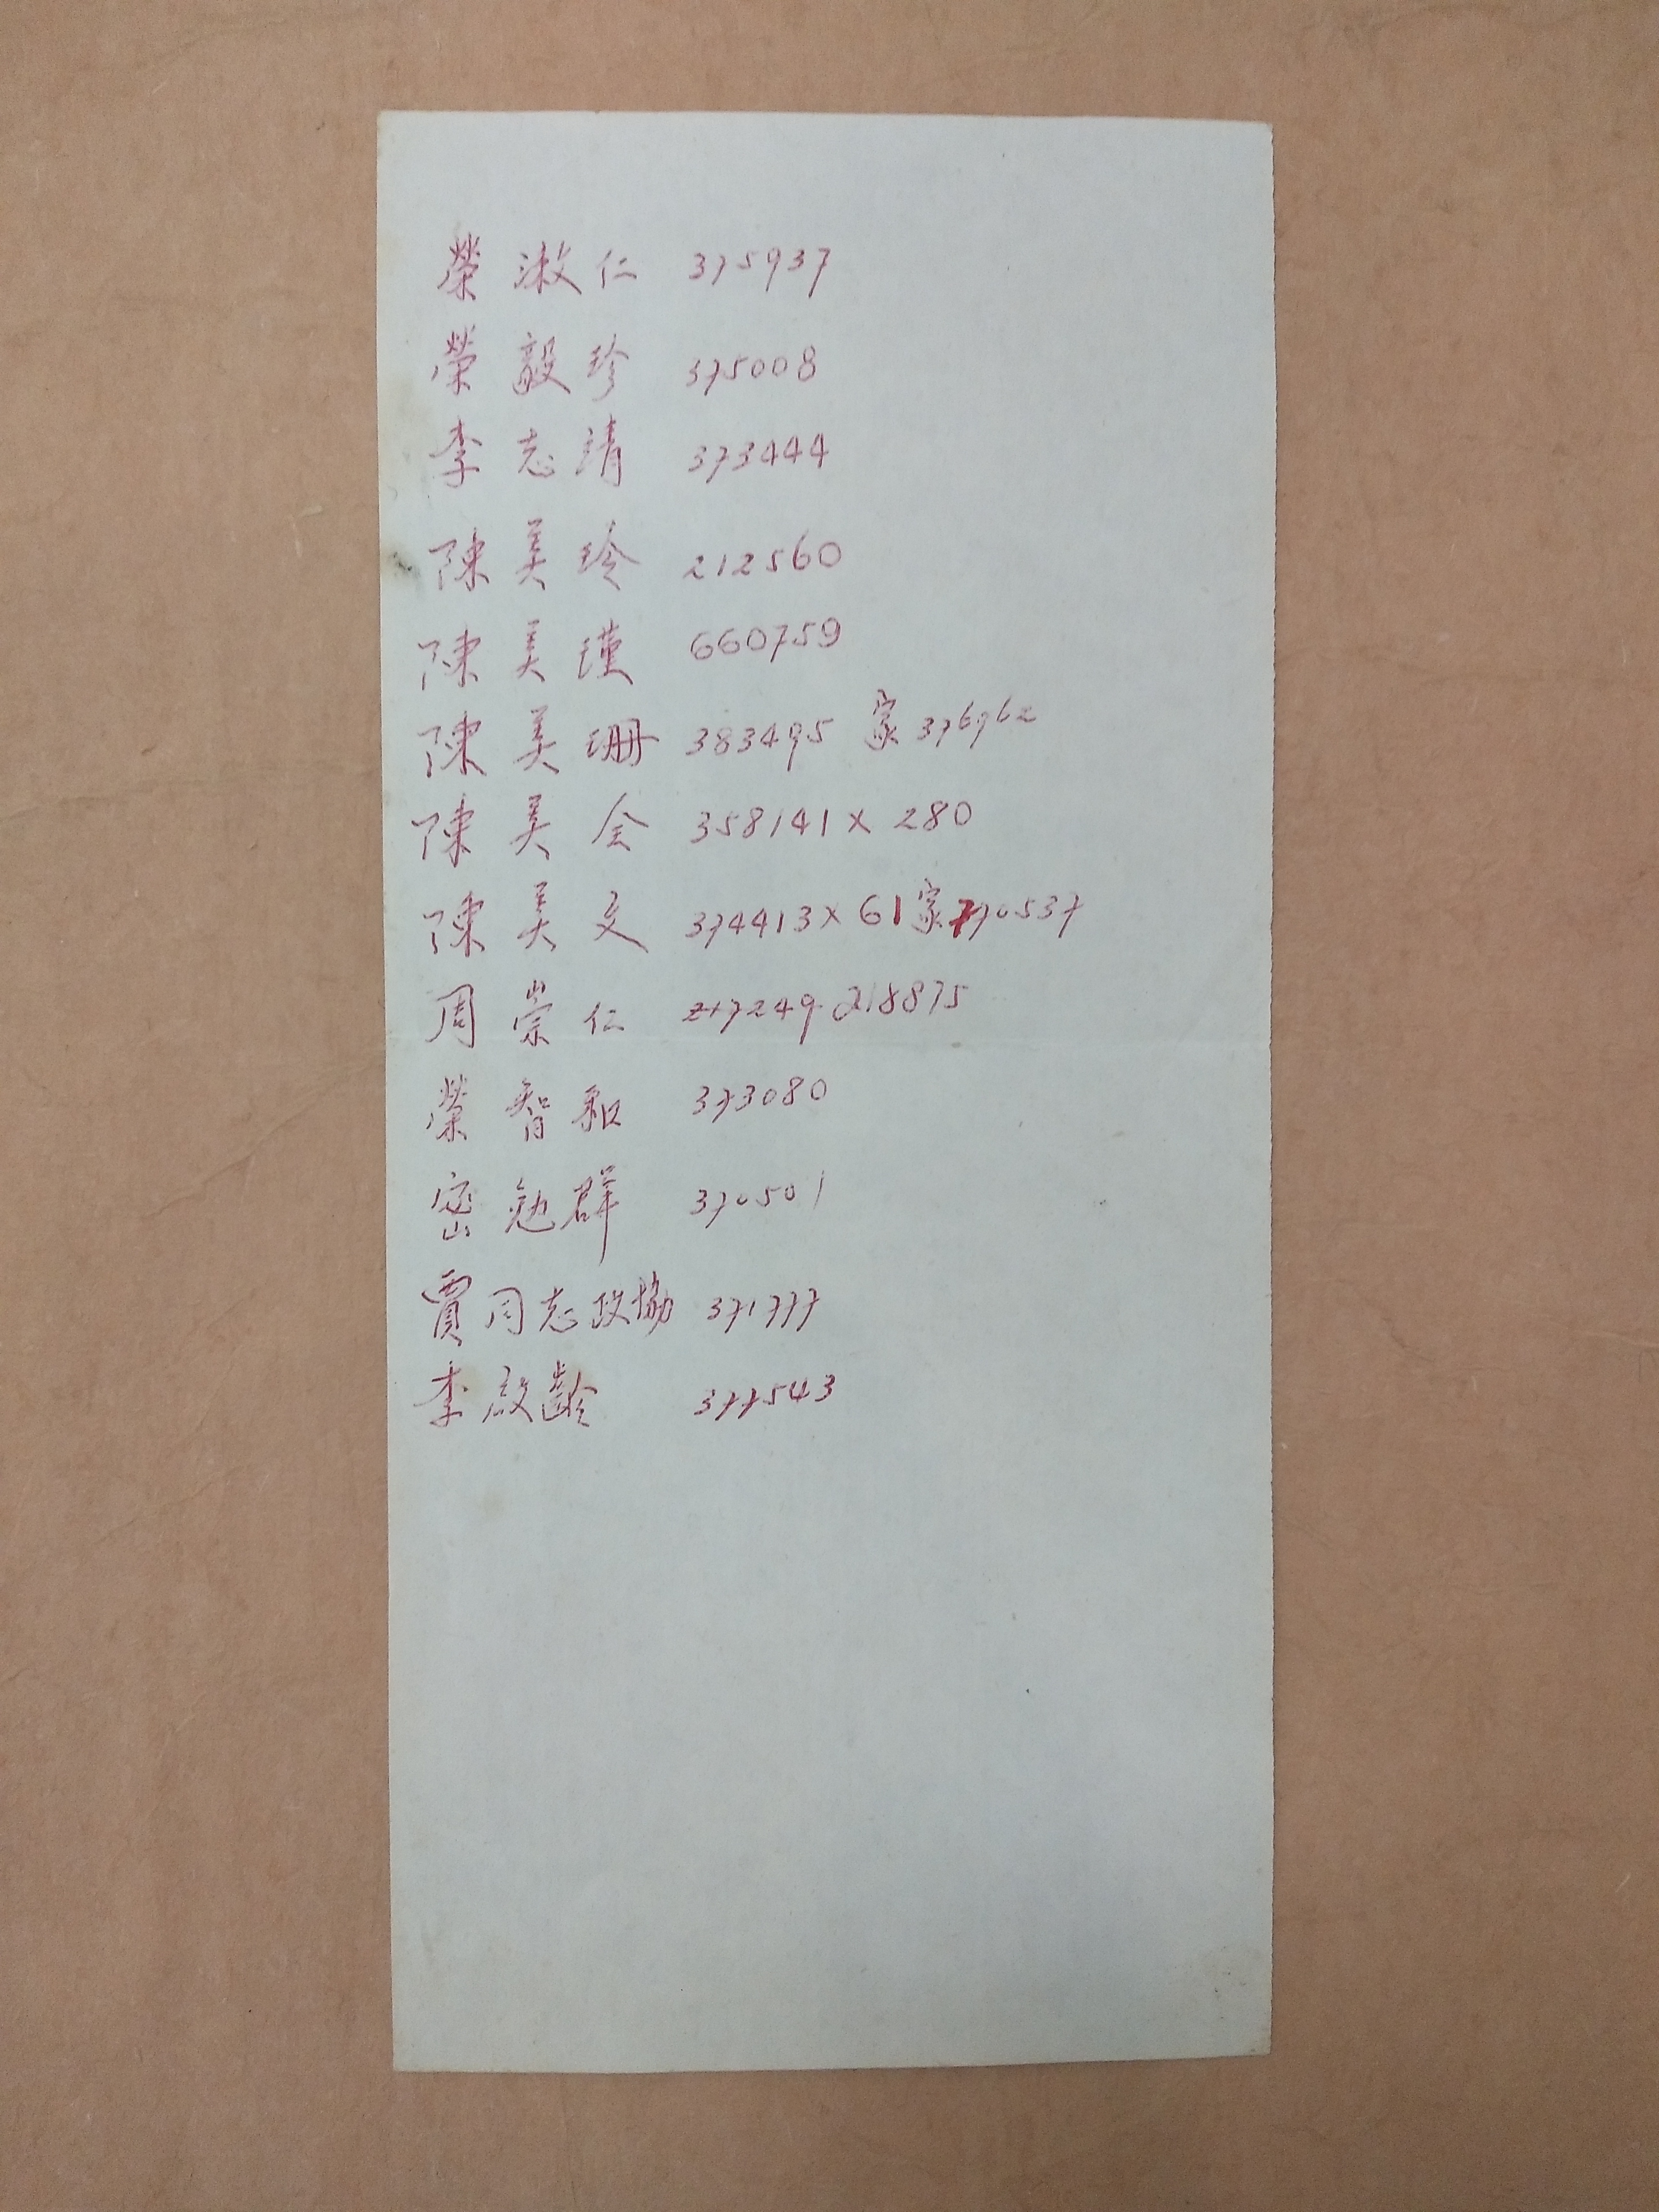 榮漱仁 375937
榮毅珍 375008
李志清 373444
陳美玲 212560
陳美瑾 660759
陳美珊 383495 家 376962
陳美全 358141 X 280
陳美文 374413 X 61 家 770537
周崇仁 217249 218875
榮智和 373080
密勉群 370501
賈同志政協 371777
李啟齡 377543